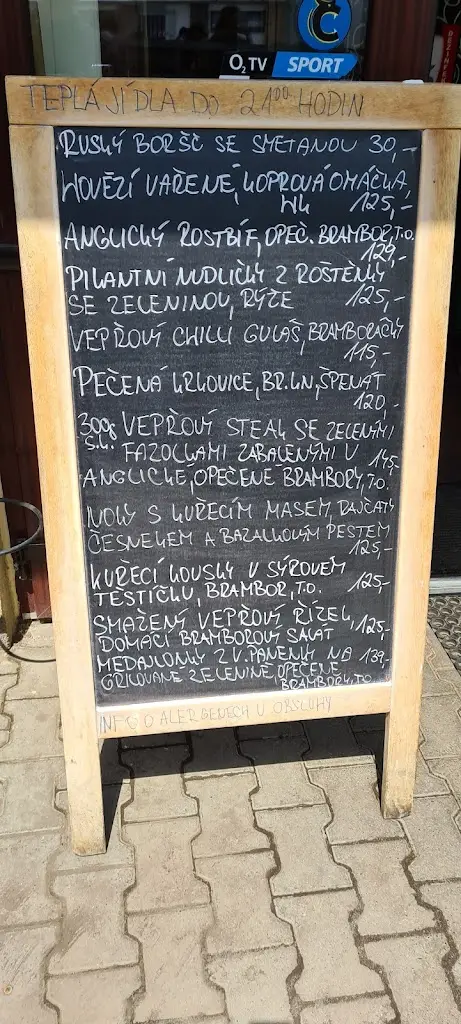 O2 TV SPORT
TEPLÁ JÍDLA DO 21⁰⁰ HODIN
RUSKÝ BORŠČ SE SMETANOU 30,-
HOVĚZÍ VAŘENÉ, KOPROVÁ OMÁČKA,
HK 125,-
ANGLICKÝ ROSTBÍF, OPEČ. BRAMBOR, T.O.
129,-
PIKANTNÍ NUDLIČKY Z ROŠTĚNKY
SE ZELENINOU, RÝŽE 125,-
VEPŘOVÝ CHILLI GULÁŠ, BRAMBORÁČKY
115,-
PEČENÁ KRKOVICE, BR.KN, ŠPENÁT
120,-
300g VEPŘOVÝ STEAK SE ZELENÝMI
S.H. FAZOLKAMI ZABALENÝMI V
ANGLICKÉ, OPEČENÉ BRAMBORY, T.O. 145,-
NOKY S KUŘECÍM MASEM, RAJČATY
ČESNEKEM A BAZALKOVÝM PESTEM
125,-
KUŘECÍ KOUSKY V SÝROVÉM
TĚSTÍČKU, BRAMBOR, T.O. 125,-
SMAŽENÝ VEPŘOVÝ ŘÍZEK,
DOMÁCÍ BRAMBOROVÝ SALÁT 125,-
MEDAILONKY Z V. PANENKY NA 139,-
GRILOVANÉ ZELENINĚ, OPEČENÉ
BRAMBORY, T.O.
INFO O ALERGENECH U OBSLUHY